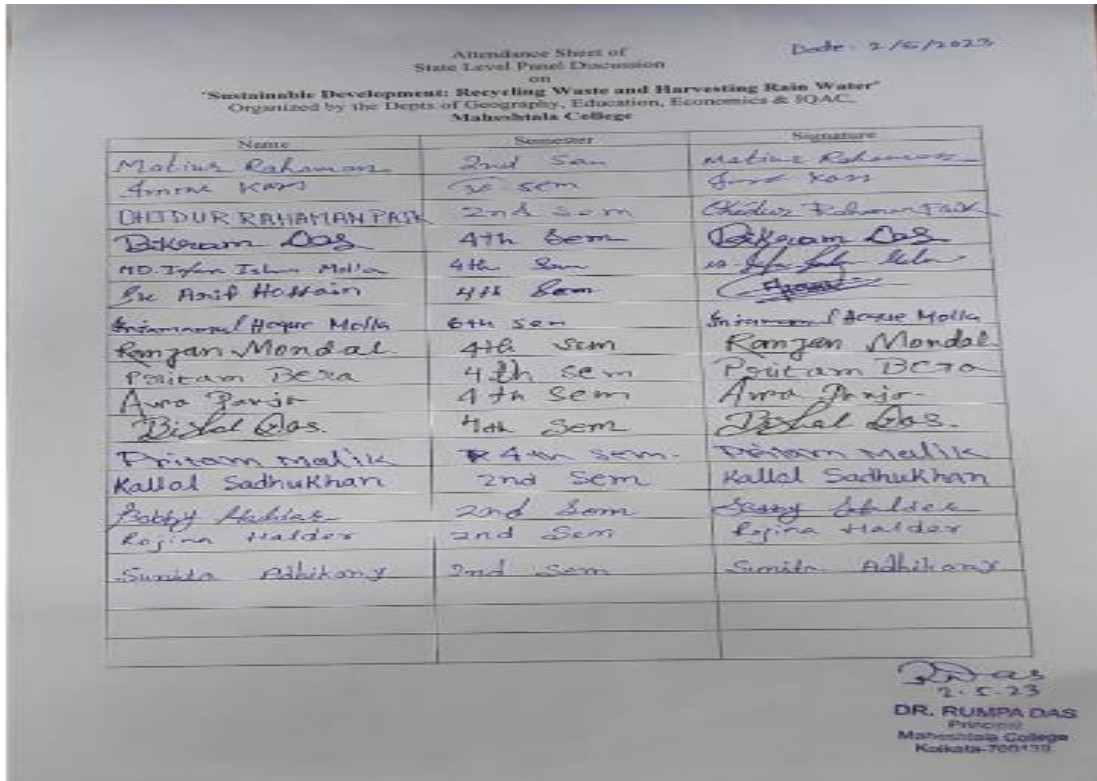 Date - 2/5/2023
Attendance Sheet of
State Level Panel Discussion
on
"Sustainable Development: Recycling Waste and Harvesting Rain Water"
Organized by the Depts of Geography, Education, Economics & IQAC,
Maheshtala College
Name Semester Signature
Matiur Rahaman 2nd Sem Matiur Rahaman
sem
RAHAMAN PAIK 2nd sem Rahaman Paik
Bikram Das 4th Sem Bikram Das
MD. Molla 4th Sem
Sk Arif Hossain 4th Sem
Inzamamul Hoque Molla 6th sem Inzamamul Hoque Molla
Ramjan Mondal. 4th sem Ramjan Mondal
Pritam Bera 4th sem Pritam Bera
4th Sem
Bishal Das. 4th Sem Bishal Das.
Pritam Malik 4th sem. Pritam Malik
Kallal Sadhukhan 2nd Sem Kallal Sadhukhan
Bobby Halder 2nd Sem Halder
Rojina Halder 2nd Sem Rojina Halder
Sumita Adhikary 2nd Sem Sumita Adhikary
RDas
2.5.23
DR. RUMPA DAS
Principal
Maheshtala College
Kolkata-700139